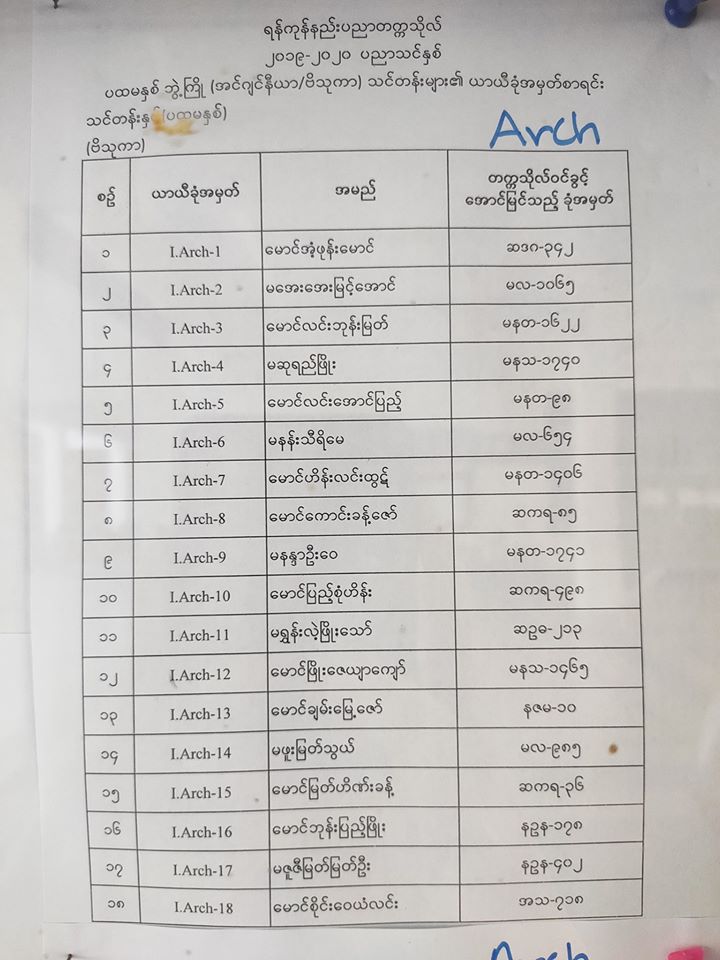 ရန်ကုန်နည်းပညာတက္ကသိုလ်
၂၀၁၉-၂၀၂၀ ပညာသင်နှစ်
ပထမနှစ် ဘွဲ့ကြို (အင်ဂျင်နီယာ/ဗိသုကာ) သင်တန်းများ၏ ယာယီခုံအမှတ်စာရင်း
သင်တန်းနှစ် (ပထမနှစ်)
Arch
(ဗိသုကာ)
စဉ် ယာယီခုံအမှတ် အမည် တက္ကသိုလ်ဝင်ခွင့် အောင်မြင်သည့် ခုံအမှတ်
၁ I.Arch-1 မောင်အံ့ဖုန်းမောင် ဆဒဂ-၃၄၂
၂ I.Arch-2 မအေးအေးမြင့်အောင် မလ-၁၀၆၅
၃ I.Arch-3 မောင်လင်းဘုန်းမြတ် မနတ-၁၆၂၂
၄ I.Arch-4 မဆုရည်ဖြိုး မနသ-၁၇၄၀
၅ I.Arch-5 မောင်လင်းအောင်ပြည့် မနတ-၉၈
၆ I.Arch-6 မနန်းသီရိမေ မလ-၆၅၄
၇ I.Arch-7 မောင်ဟိန်းလင်းထွဋ် မနတ-၁၄၀၆
၈ I.Arch-8 မောင်ကောင်းခန့်ဇော် ဆကရ-၈၅
၉ I.Arch-9 မနန္ဒာဦးဝေ မနတ-၁၇၄၁
၁၀ I.Arch-10 မောင်ပြည့်စုံဟိန်း ဆကရ-၄၉၈
၁၁ I.Arch-11 မရွှန်းလဲ့ဖြိုးသော် ဆဥဓ-၂၁၃
၁၂ I.Arch-12 မောင်ဖြိုးဇေယျာကျော် မနသ-၁၄၆၅
၁၃ I.Arch-13 မောင်ချမ်းမြေ့ဇော် နဇမ-၁၀
၁၄ I.Arch-14 မဖူးမြတ်သွယ် မလ-၉၈၅
၁၅ I.Arch-15 မောင်မြတ်ဟိဏ်းခန့် ဆကရ-၃၆
၁၆ I.Arch-16 မောင်ဘုန်းပြည့်ဖြိုး နဥန-၁၇၈
၁၇ I.Arch-17 မဇူဇီမြတ်မြတ်ဦး နဥန-၄၀၂
၁၈ I.Arch-18 မောင်စိုင်းဝေယံလင်း အသ-၇၁၈
Arch